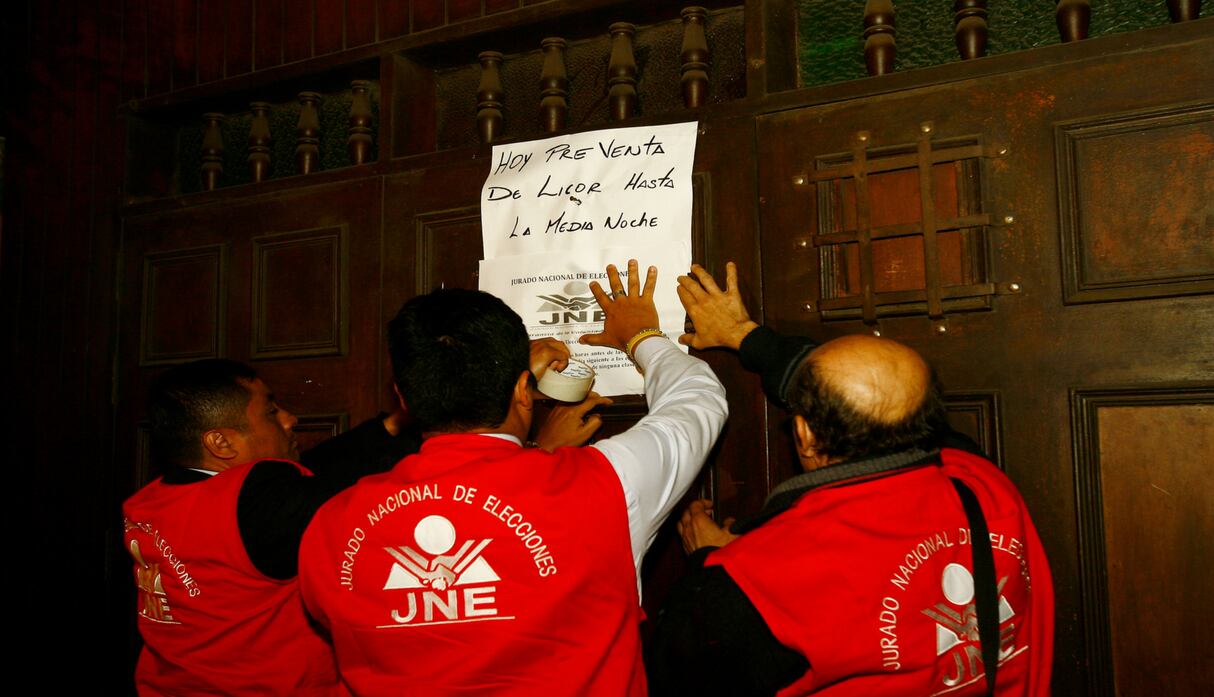 HOY PRE VENTA
DE LICOR HASTA
LA MEDIA NOCHE
JURADO NACIONAL DE ELECCIONES
JNE
de ninguna clase
JURADO NACIONAL DE ELECCIONES
JNE
ELECCIONES
JURADO NACIONAL DE ELEC
JNE